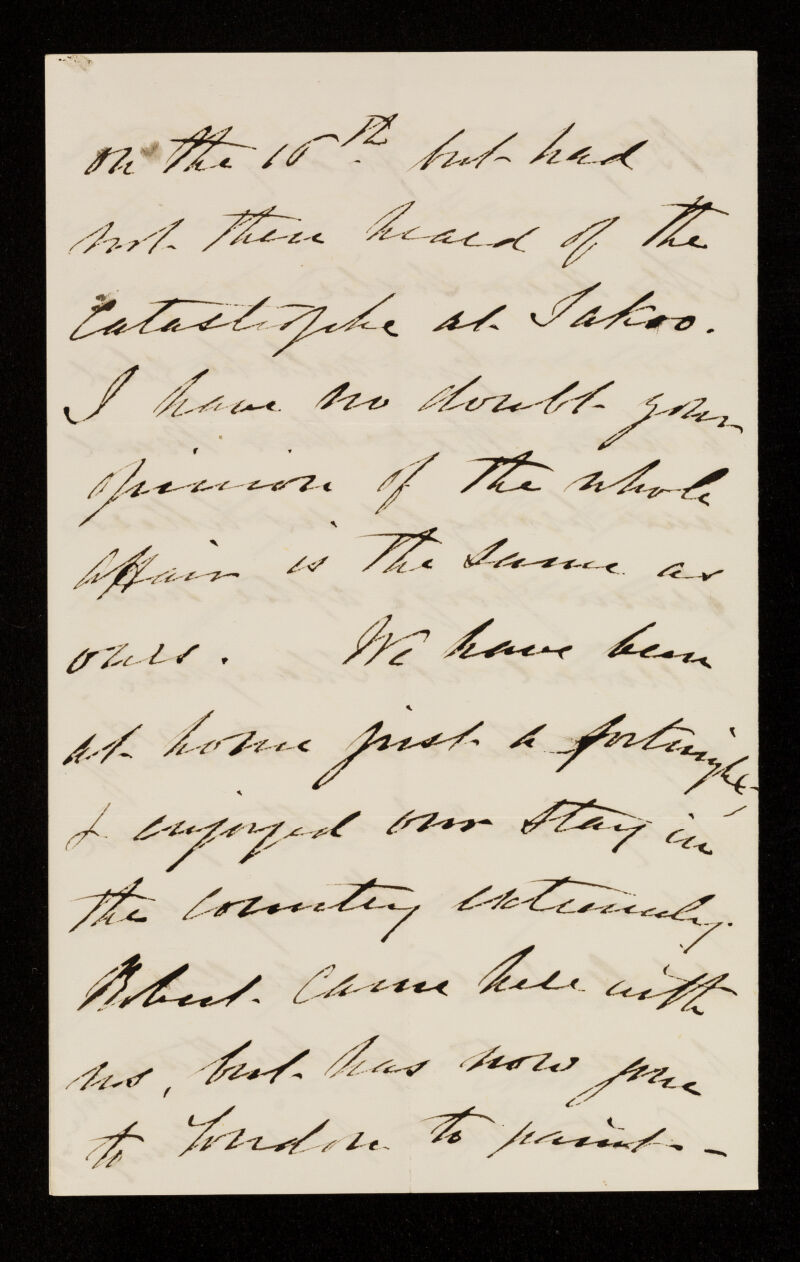 on the 18th but had
not then heard of the
Catastrophe at Takoo.
I have no doubt your
opinion of the whole
affair is the same as
ours. We have been
at home just a fortnight,
& enjoyed our stay in
the country extremely.
Robert came here with
us, but has now gone
to London to paint -